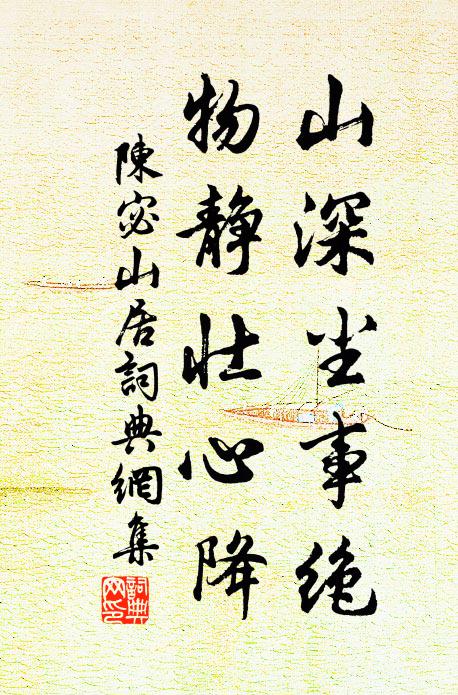 山深尘事绝
物静壮心降
陳宓山居詞典網集
詞典
网印